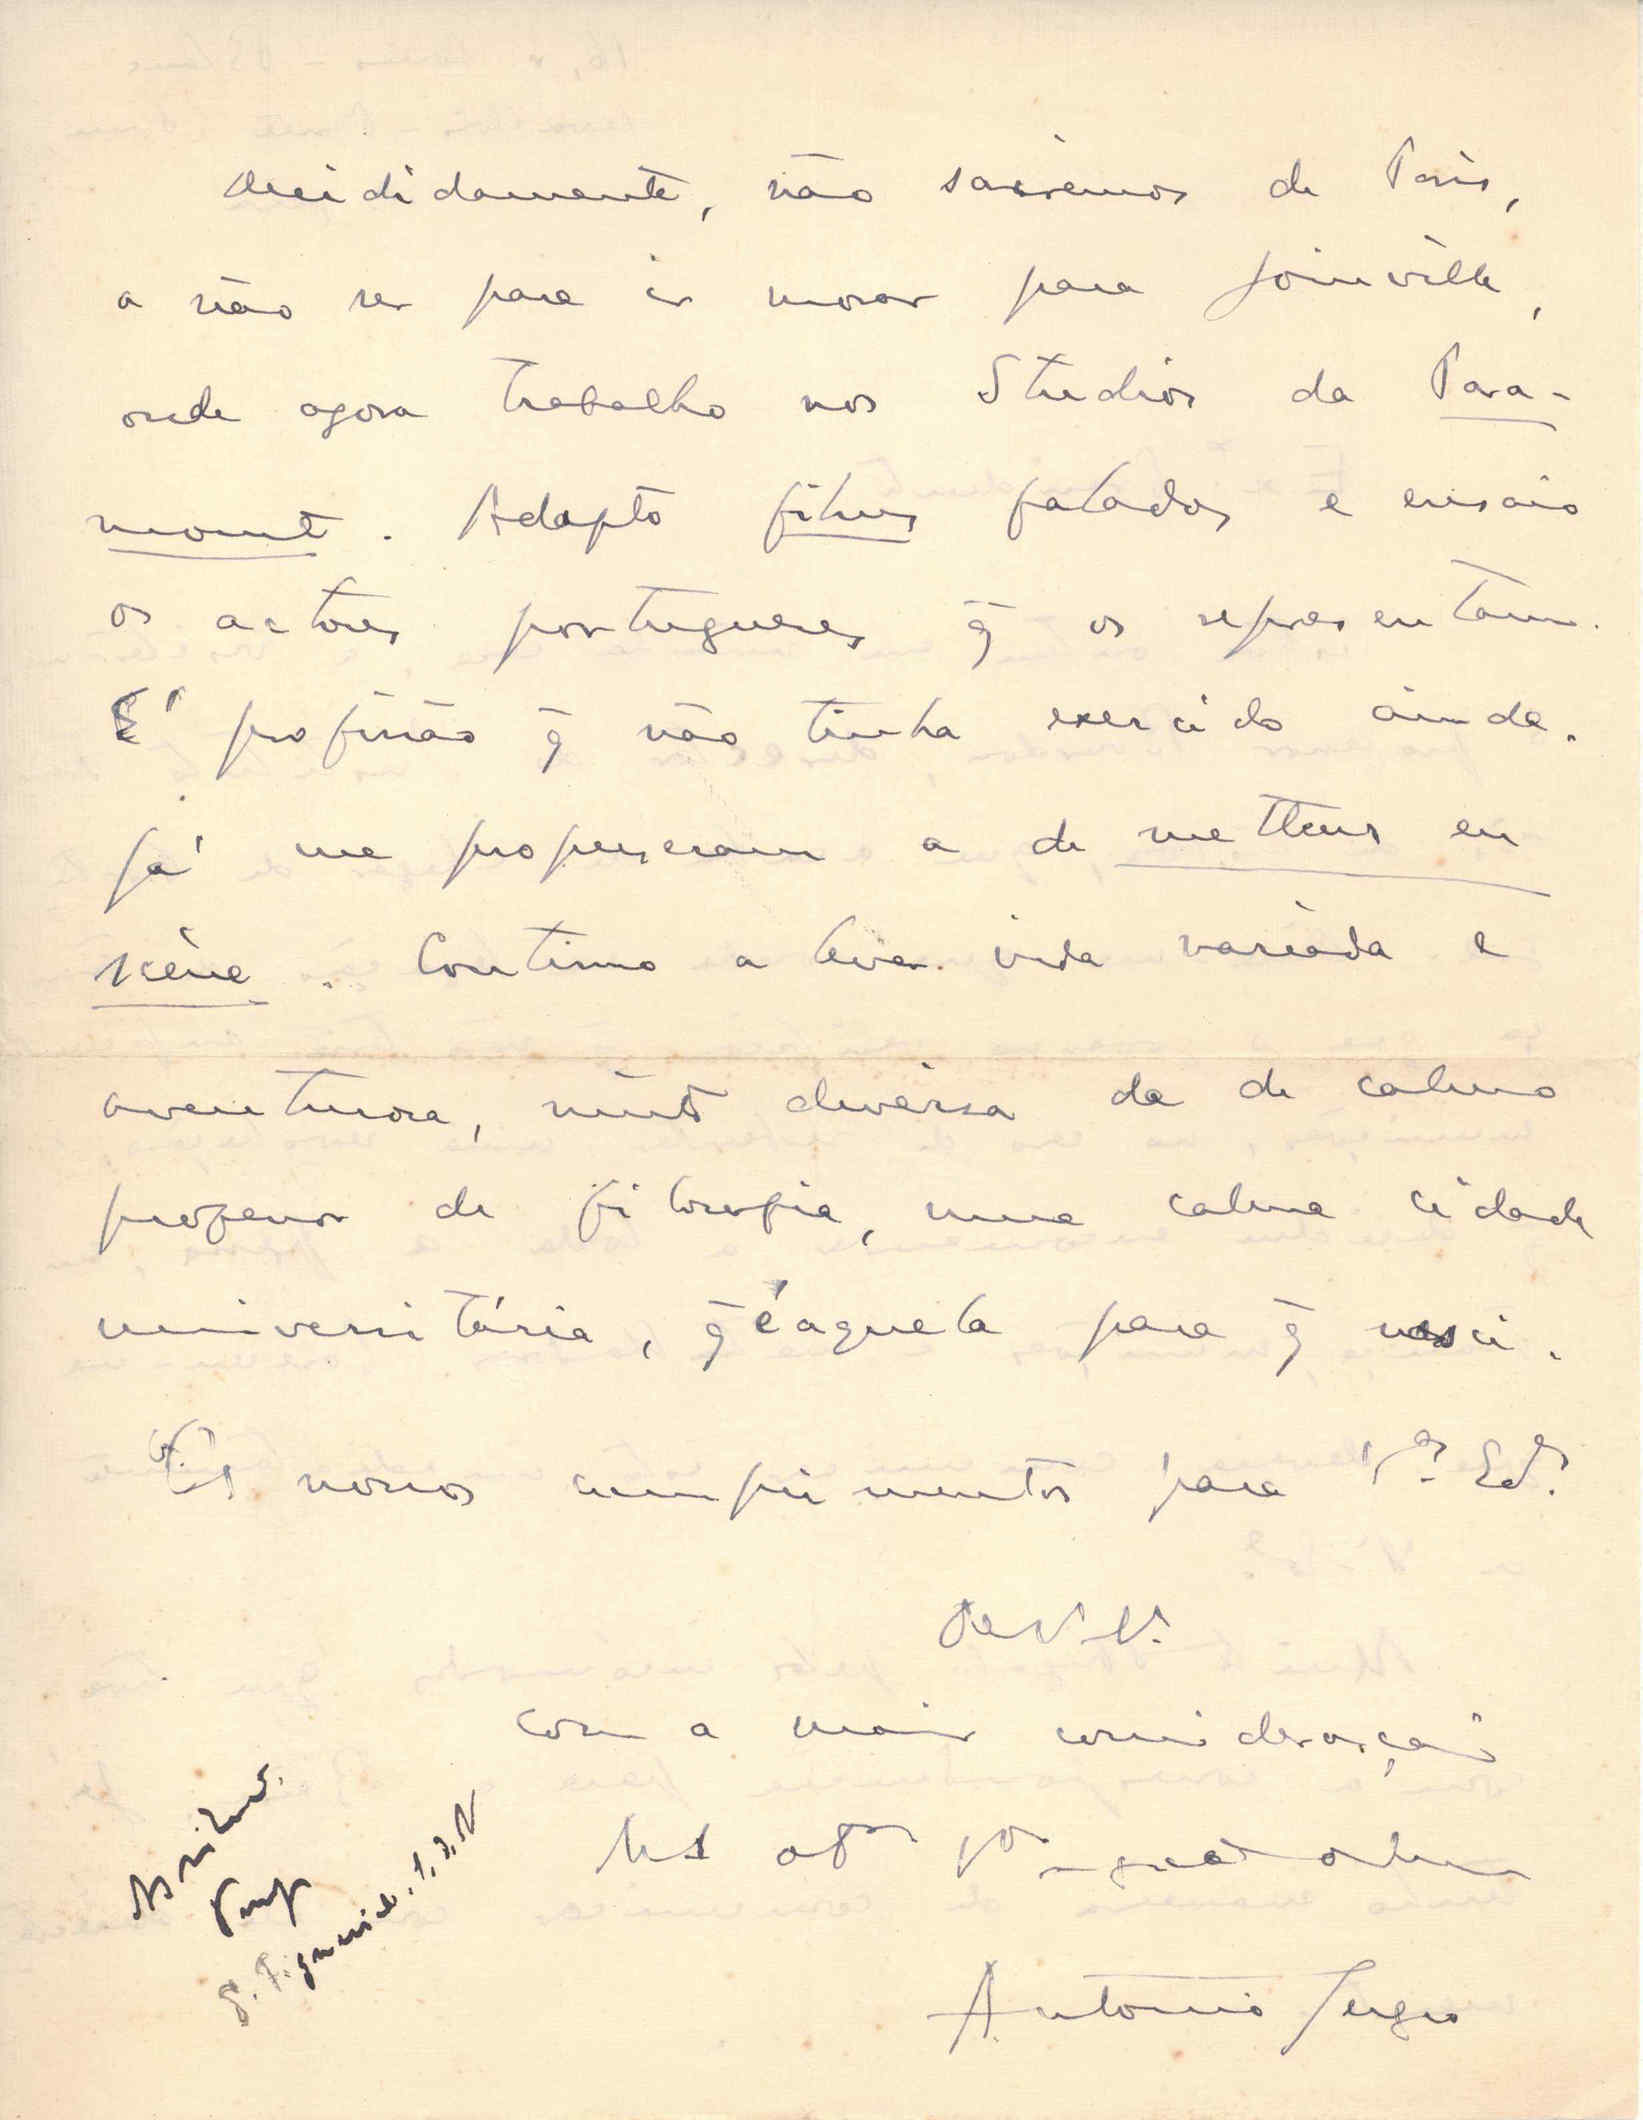 Decididamente, não sairemos de Paris,
a não ser para ir morar para Joinville,
onde agora trabalho nos Studios da Para-
mount. Adapto films falados e ensaio
os actores portugueses q̄ os representam.
É profissão q̄ não tinha exercido ainda.
Já me propuseram a de metteur en
scène. Continuo a levar vida variada e
aventurosa, muito diversa da de calmo
professor de filosofia, numa calma cidade
universitária, q̄ é aquela para q̄ nasci.
Os nossos cumprimentos para
De V.
Com a maior consideração
Mt
António Sergio